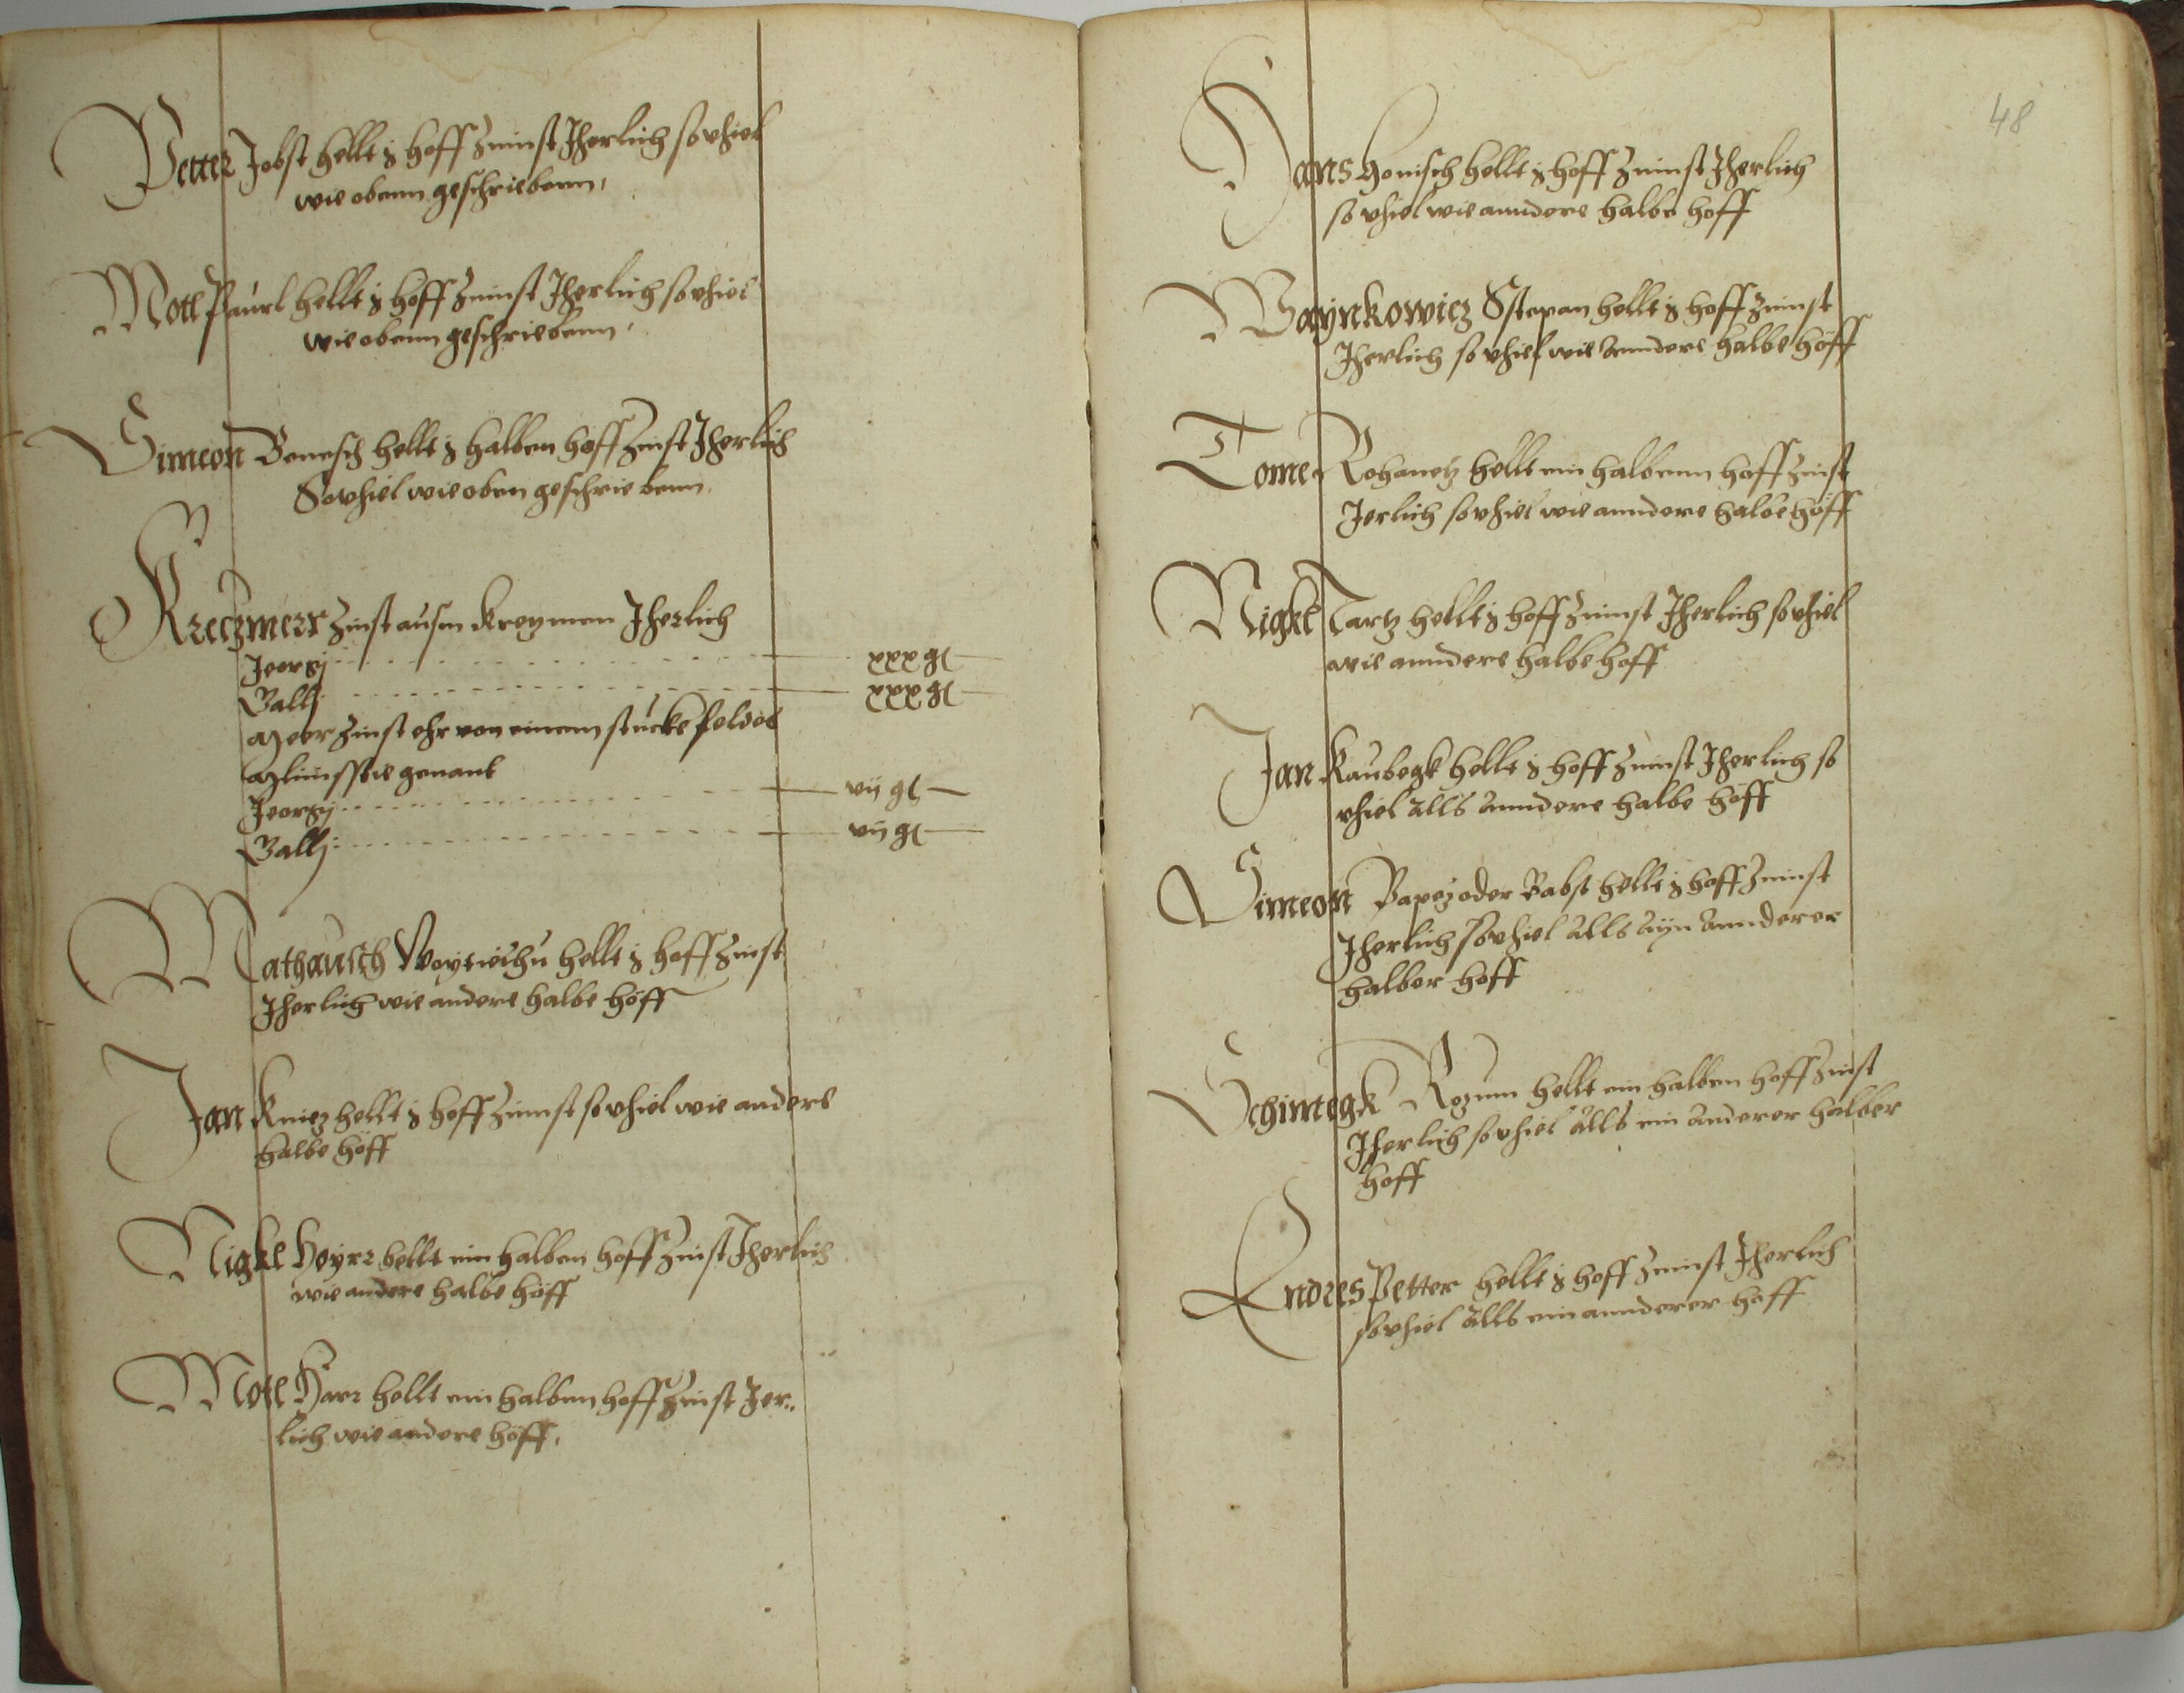 Petter Jobst hellt ½ hoff Zinnst Jherlich so vhiel
wie obenn geschriebenn,
Motl Paurl hellt ½ hoff Zinnst Jherlich so vhiel
wie obenn geschriebenn,
Simeon Benesch hellt ½ halben hoff Zinst Jherlich
So vhiel wie oben geschriebenn
Kreczmerr Zinst ausm Kreczmen Jherlich
Jeorgj xxx gl
Gallj xxx gl
Meer Zinst ehr von einem stucke feldes
genant
Jeorgj vij gl
Gallj vij gl
Mathausch Woytiechu hellt ½ hoff Zinst
Jherlich wie andere halbe höff
Jan Kniez hellt ½ hoff Zinnst so vhiel wie andere
halbe höff
Nigkl Hoyrr hellt ein halben hoff Zinst Jherlich
wie andere halbe höff
Motl Harr hellt ein halben hoff Zinst Jer„
lich wie andere höff,
48
Hans Honisch hellt ½ hoff Zinnst Jherlich
so vhiel wie anndere halbe hoff
Waynkowicz Sstepan hellt ½ hoff Zinnst
Jherlich so vhiel wie anndere halbe höff
Tome Rohanetz hellt ein halbenn hoff Zinst
Jerlich so vhiel wie anndere halbe höff
Nigkl Tartz hellt ½ hoff Zinnst Jherlich so vhiel
wie anndere halbe hoff
Jan Kaubegk hellt ½ hoff Zinnst Jherlich so
vhiel alls anndere halbe höff
Simeon Papez oder Babst hellt ½ hoff Zinnst
Jherlich so vhiel alls ayn annderer
halber hoff
Schimegk Rozum hellt ein halben hoff Zinst
Jherlich so vhiel alls ein anderer halber
hoff
Endres Petter hellt ½ hoff Zinnst Jherlich
so vhiel alls ein annderer hoff